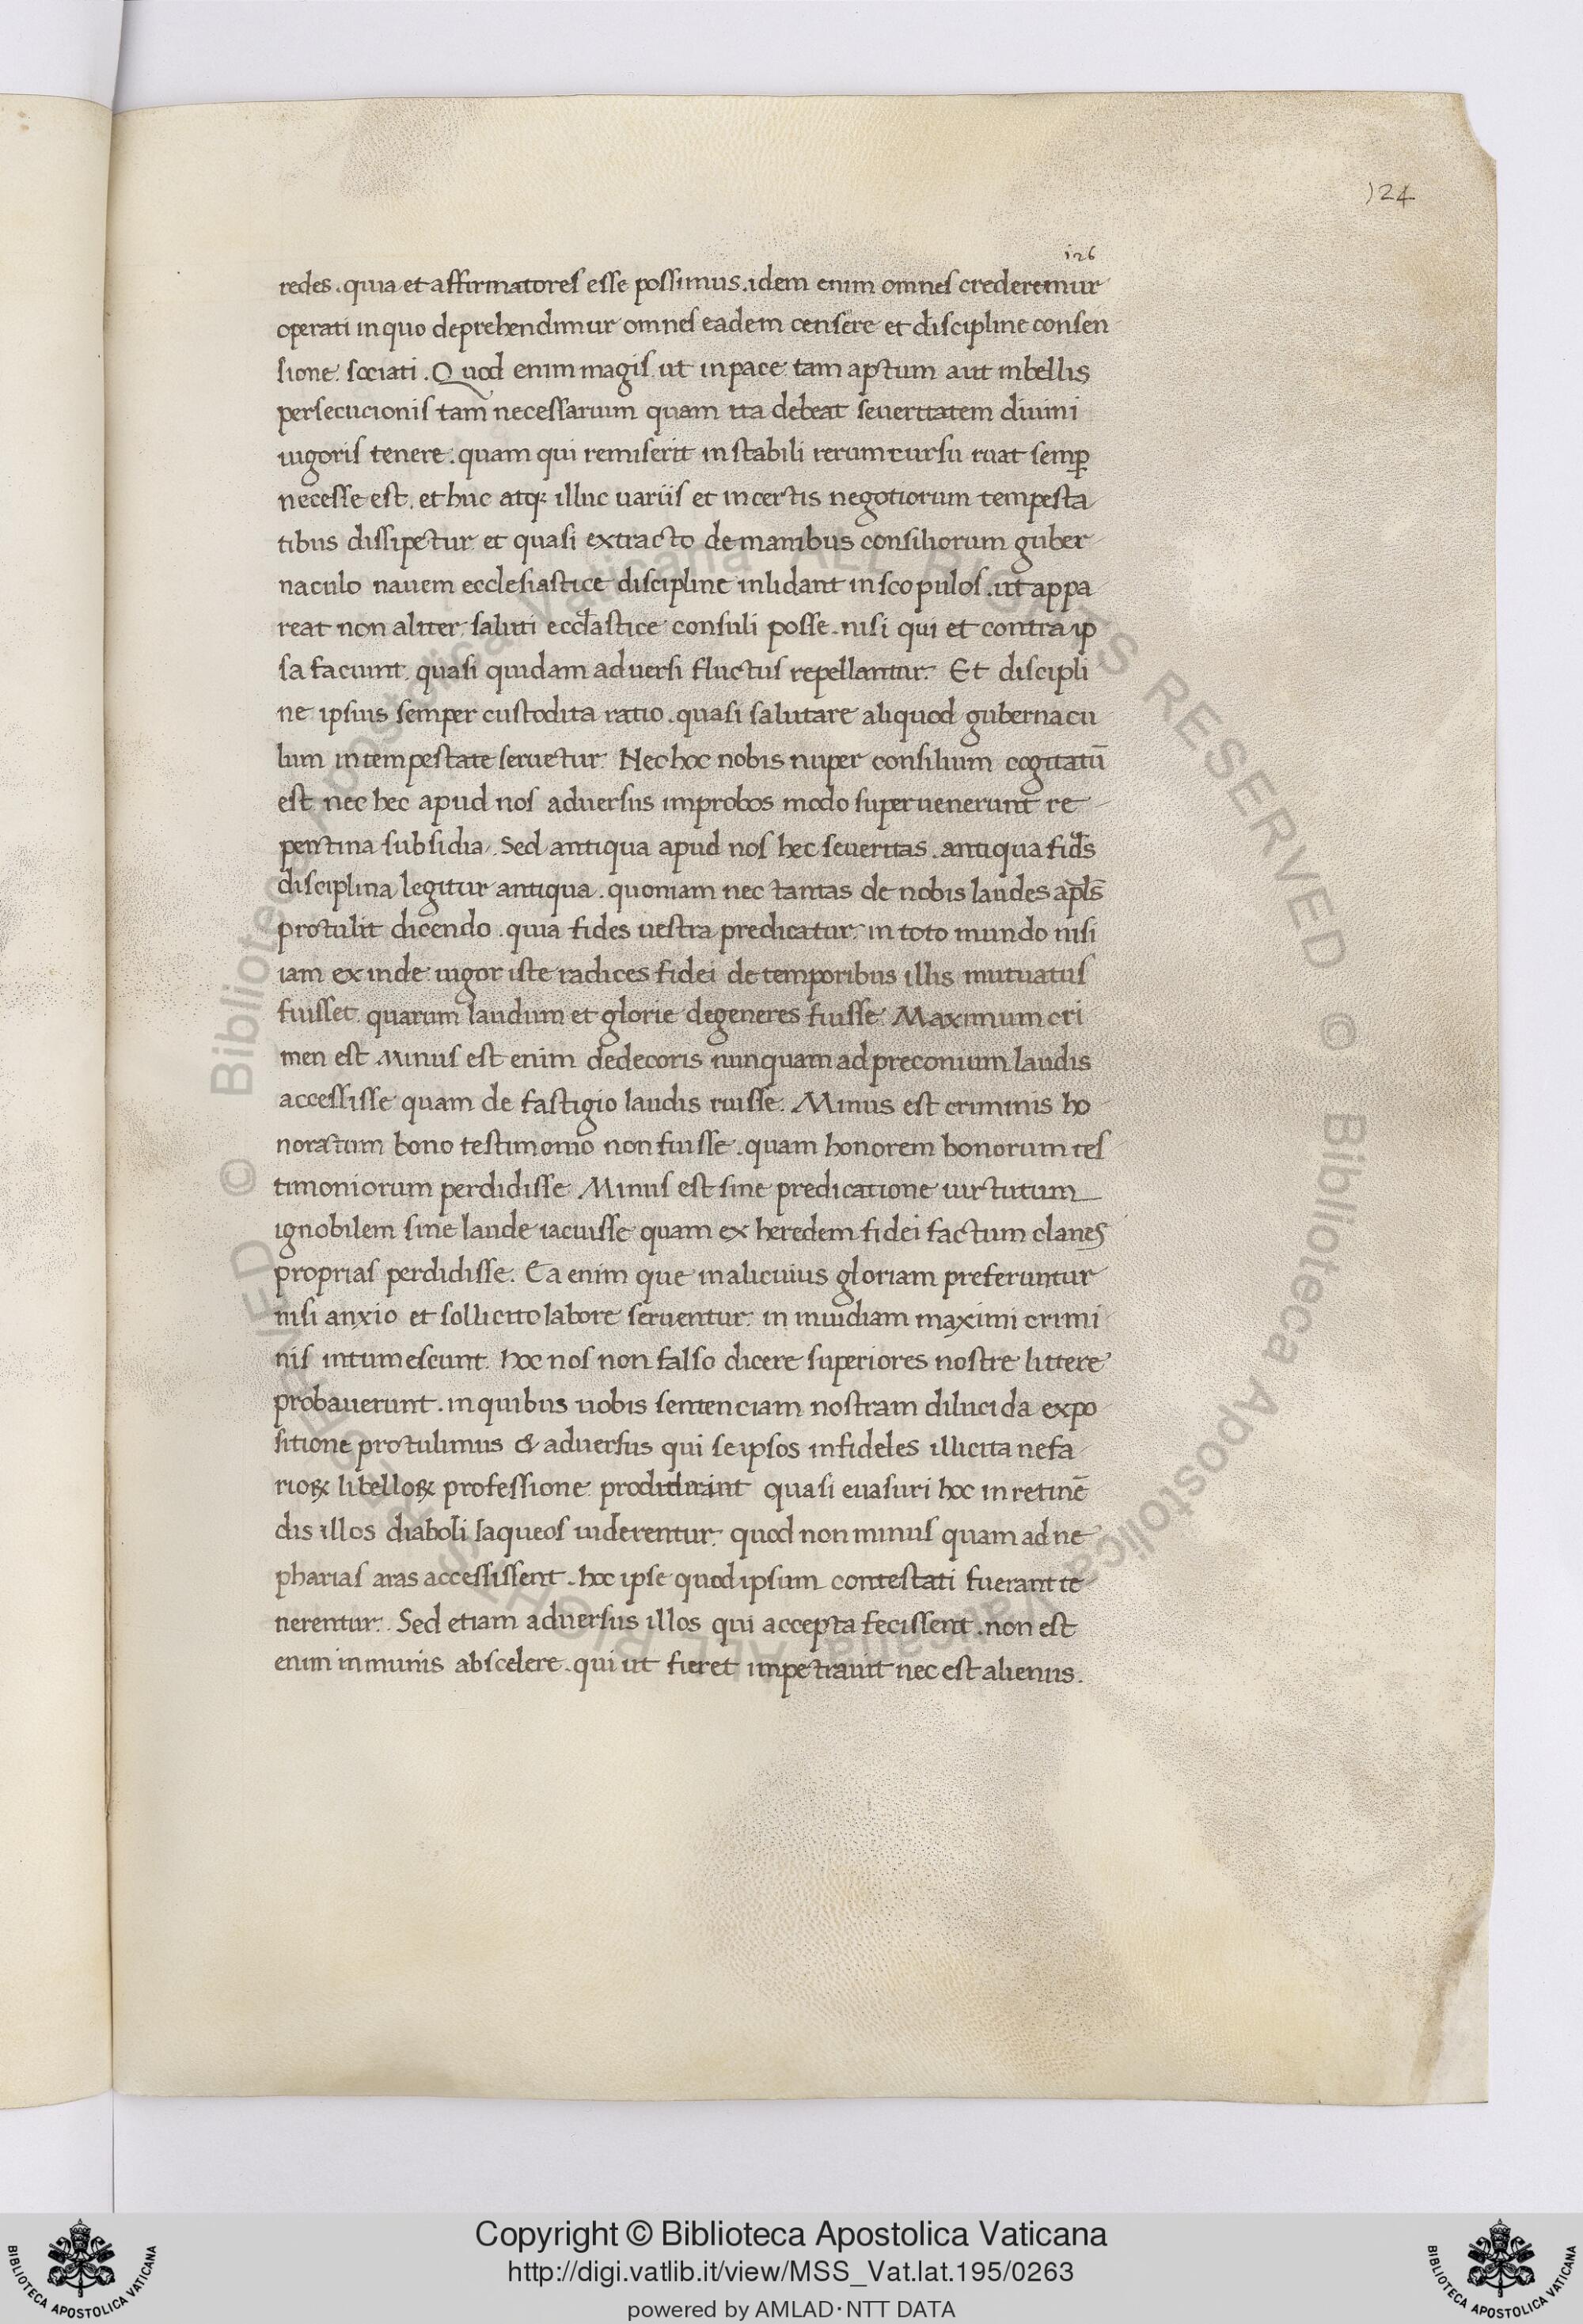 124
126
redes. quia et affirmatores esse possimus. idem enim omnes crederemur
operati in quo deprehendimur omnes eadem censere et discipline consen
sione sociati. Quod enim magis ut in pace tam aptum aut in bellis
persecucionis tam necessarium quam ita debeat seueritatem diuini
uigoris tenere. quam qui remiserit instabili rerum cursu ruat semp̲
necesse est. et huc atq; illuc uariis et incertis negotiorum tempesta
tibus dissipetur et quasi extracto de manibus consiliorum guber
naculo nauem ecclesiastice discipline inlidant in scopulos. ut appa
reat non aliter saluti eccl̄astice consuli posse. nisi qui et contra ip
sa faciunt. quasi quidam aduersi fluctus repellantur. Et discipli
ne ipsius semper custodita ratio. quasi salutare aliquod gubernacu
lum in tempestate seruetur. Nec hoc nobis nuper consilium cogitatū
est nec hec apud nos aduersus improbos modo superuenerunt re
pentina subsidia. Sed antiqua apud nos hec seueritas. antiqua fid̄s
disciplina legitur antiqua. quoniam nec tantas de nobis laudes ap̄ls
protulit dicendo. quia fides uestra predicatur. in toto mundo nisi
iam exinde uigor iste radices fidei de temporibus illis mutuatus
fuisset. quarum laudum et glorie degeneres fuisse. Maximum cri
men est Minus est enim dedecoris nunquam ad preconium laudis
accessisse quam de fastigio laudis ruisse. Minus est criminis ho
noratum bono testimonio non fuisse. quam honorem bonorum tes
timoniorum perdidisse. Minus est sine predicatione uirtutum
ignobilem sine laude iacuisse quam ex heredem fidei factum claues
proprias perdidisse. Ea enim que in alicuius gloriam preferuntur
nisi anxio et sollicito labore seruentur. in inuidiam maximi crimi
nis intumescunt. hoc nos non falso dicere superiores nostre littere
probauerunt. in quibus uobis sentenciam nostram dilucida expo
sitione protulimus & aduersus qui se ipsos infideles illicita nefa
rioꝝ libelloꝝ professione prodiderant quasi euasuri hoc inretinē
dis illos diaboli laqueos uiderentur. quod non minus quam ad ne
pharias aras accessissent. hoc ipse quod ipsum contestati fuerant te
nerentur. Sed etiam aduersus illos qui accepta fecissent. non est
enim inmunis ab scelere. qui ut fieret impetrauit nec est alienus.
© Biblioteca Apostolica Vaticana ALL RIGHTS RESERVED
© Biblioteca Apostolica Vaticana ALL RIGHTS RESERVED
Copyright © Biblioteca Apostolica Vaticana
http://digi.vatlib.it/view/MSS_Vat.lat.195/0263
powered by AMLAD·NTT DATA
BIBLIOTECA APOSTOLICA VATICANA
BIBLIOTECA APOSTOLICA VATICANA